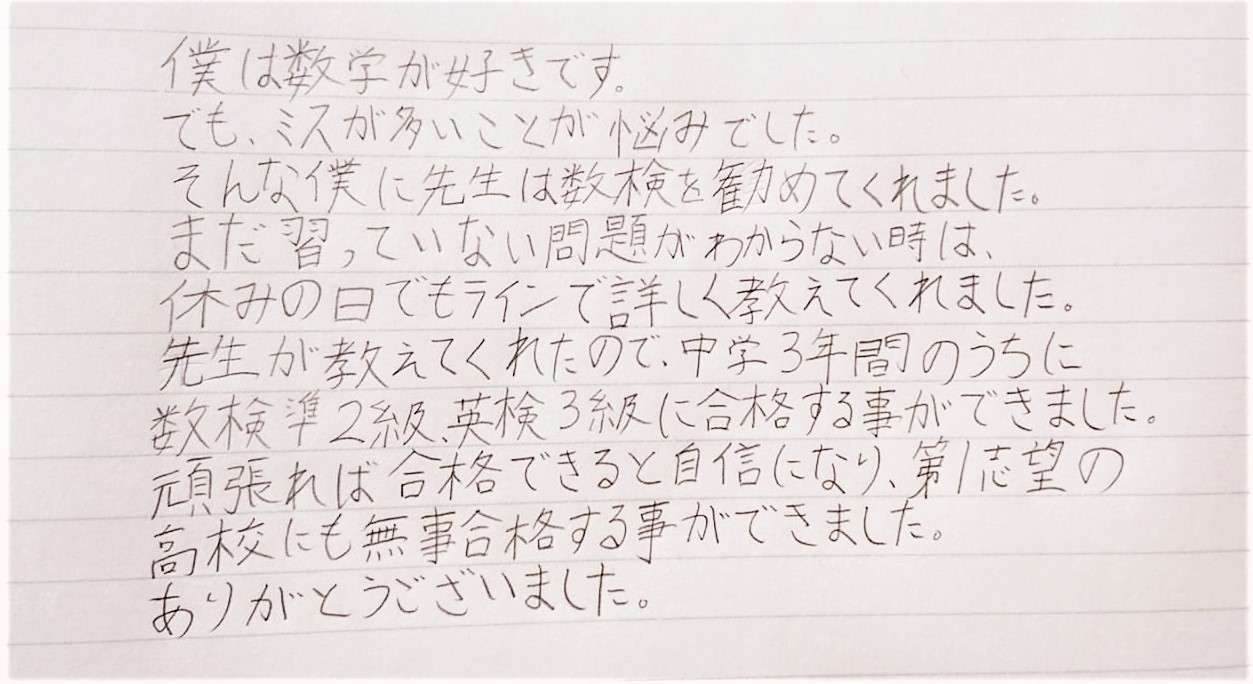 僕は数学が好きです。
でも、ミスが多いことが悩みでした。
そんな僕に先生は数検を勧めてくれました。
まだ習っていない問題がわからない時は、
休みの日でもラインで詳しく教えてくれました。
先生が教えてくれたので、中学3年間のうちに
数検準2級、英検3級に合格する事ができました。
頑張れば合格できると自信になり、第1志望の
高校にも無事合格する事ができました。
ありがとうございました。